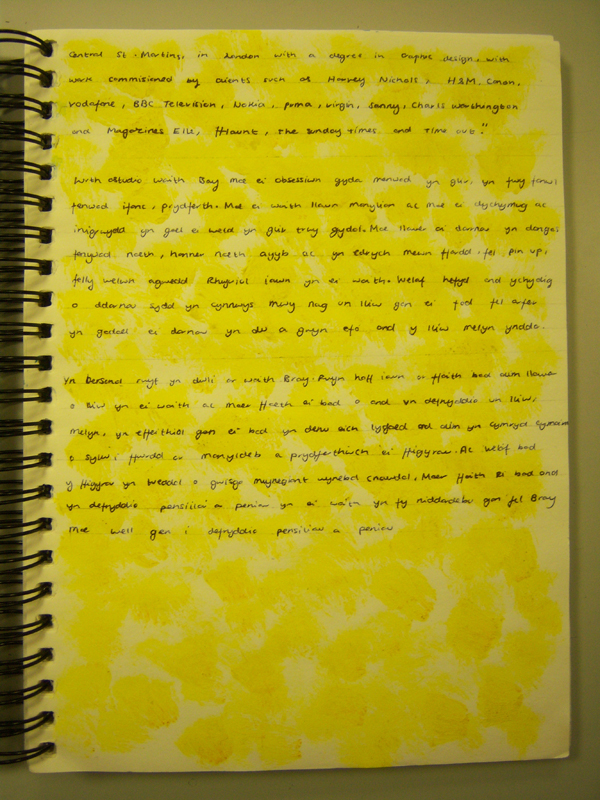 Central St. Martins, in London with a degree in Graphic design, with
work commisioned by clients such as Harvey Nichols, H&M, Canon,
Vodafone, BBC Television, Nokia, Puma, Virgin, Sanny, Charls Worthington
and Magazines Elle, Flaunt, the Sunday Times and Time out."
Wrth astudio waith Bray mae ei obsesiwn gyda menwod yn glir, yn fwy
fenwod ifanc, prydferth. Mae ei waith llawn manylion ac mae ei dychymyg ac
yn gael ei weld yn glir trwy gydol. Mae llawer ei darnau yn dangos
fenywod noeth, hanner noeth ayyb ac yn edrych mewn ffordd fel pin up,
felly welwn agwedd Rhywiol iawn yn ei waith. Welaf hefyd ond ychydig
o ddarnau sydd yn cynnwys mwy nag un lliw gan ei fod fel arfer
yn gadael ei darnau yn du a gwyn efo ond y lliw melyn ynddo.
Yn bersonol rwyf yn dwli ar waith Bray. Rwyn hoff iawn or ffaith bod dim llawer
o lliw yn ei waith ac maer ffaeth ei bod o ond yn defnyddio un lliw,
melyn, yn effeithiol gan ei bod yn denu eich llygaed ond dim yn cymryd gymaint
o sylw i ffwrdd or manyldeb a prydferthwch ei ffigyrau. Ac hefyd bod
y ffigyrau yn tueddol o gwisgo mynegiant wynebol cnawdol. Maer ffaith ei bod ond
yn defnyddio pensiliau a peniau yn ei waith yn fy niddordebu gan fel Bray
mae well gen i defnyddio pensiliau a peniau